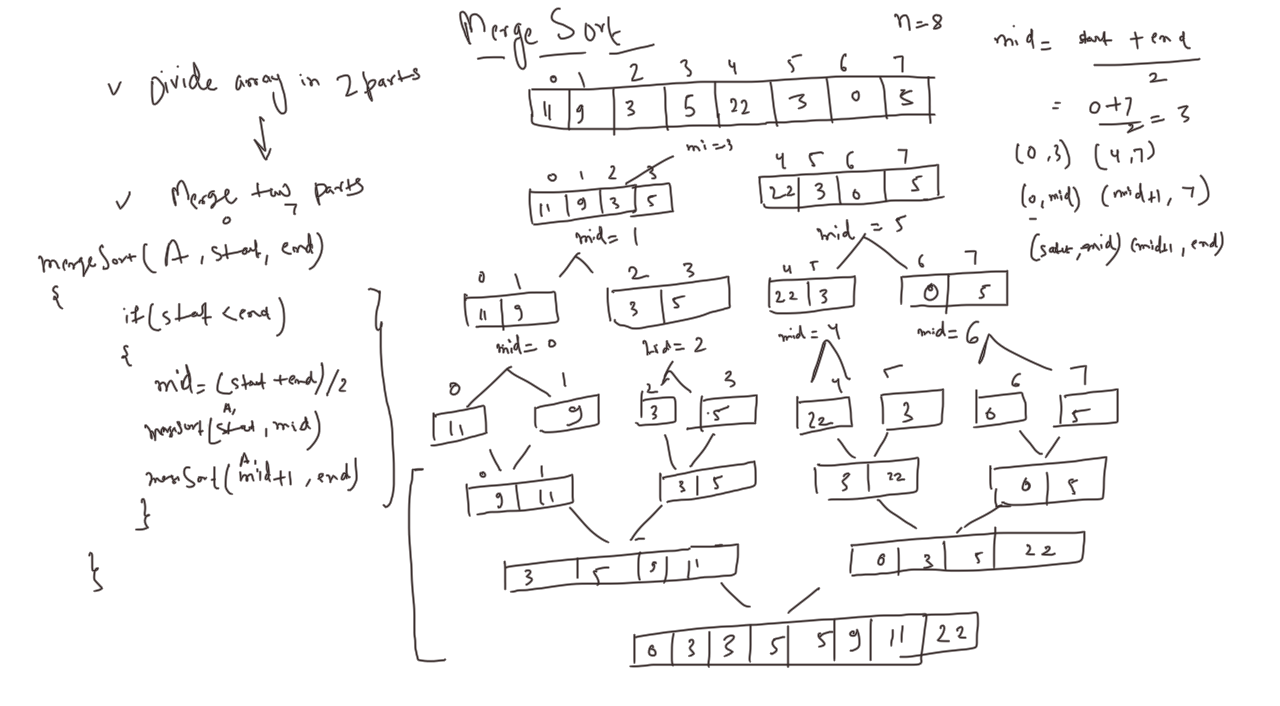 Merge Sort
n=8
✓ Divide array in 2 parts
✓ Merge two parts
0 7
mergeSort(A, start, end)
{
if(start < end)
{
mid = (start + end)/2
A,
mergeSort(start, mid)
A,
mergeSort(mid+1, end)
}
}
0 1 2 3 4 5 6 7
11 9 3 5 22 3 0 5
mi=3
0 1 2 3
11 9 3 5
mid= 1
4 5 6 7
22 3 0 5
mid = 5
0 1
11 9
mid= 0
2 3
3 5
mid= 2
4 5
22 3
mid= 4
6 7
0 5
mid= 6
0 1 2 3 4 5 6 7
11 9 3 5 22 3 0 5
0 1
9 11
3 5
3 22
0 5
3 5 9 11
0 3 5 22
0 3 3 5 5 9 11 22
mid = start + end
2
= 0+7
2 = 3
(0,3) (4,7)
(0, mid) (mid+1, 7)
(start, mid) (mid+1, end)